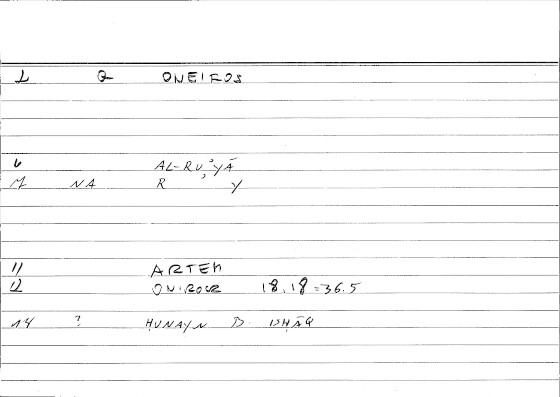 1 Q ONEIROS
6 AL-RU'YĀ
M NA R Y
11 ARTEM
12 ONIROCR 18.18=36.5
14 ? ḤUNAYN B ISḤĀQ